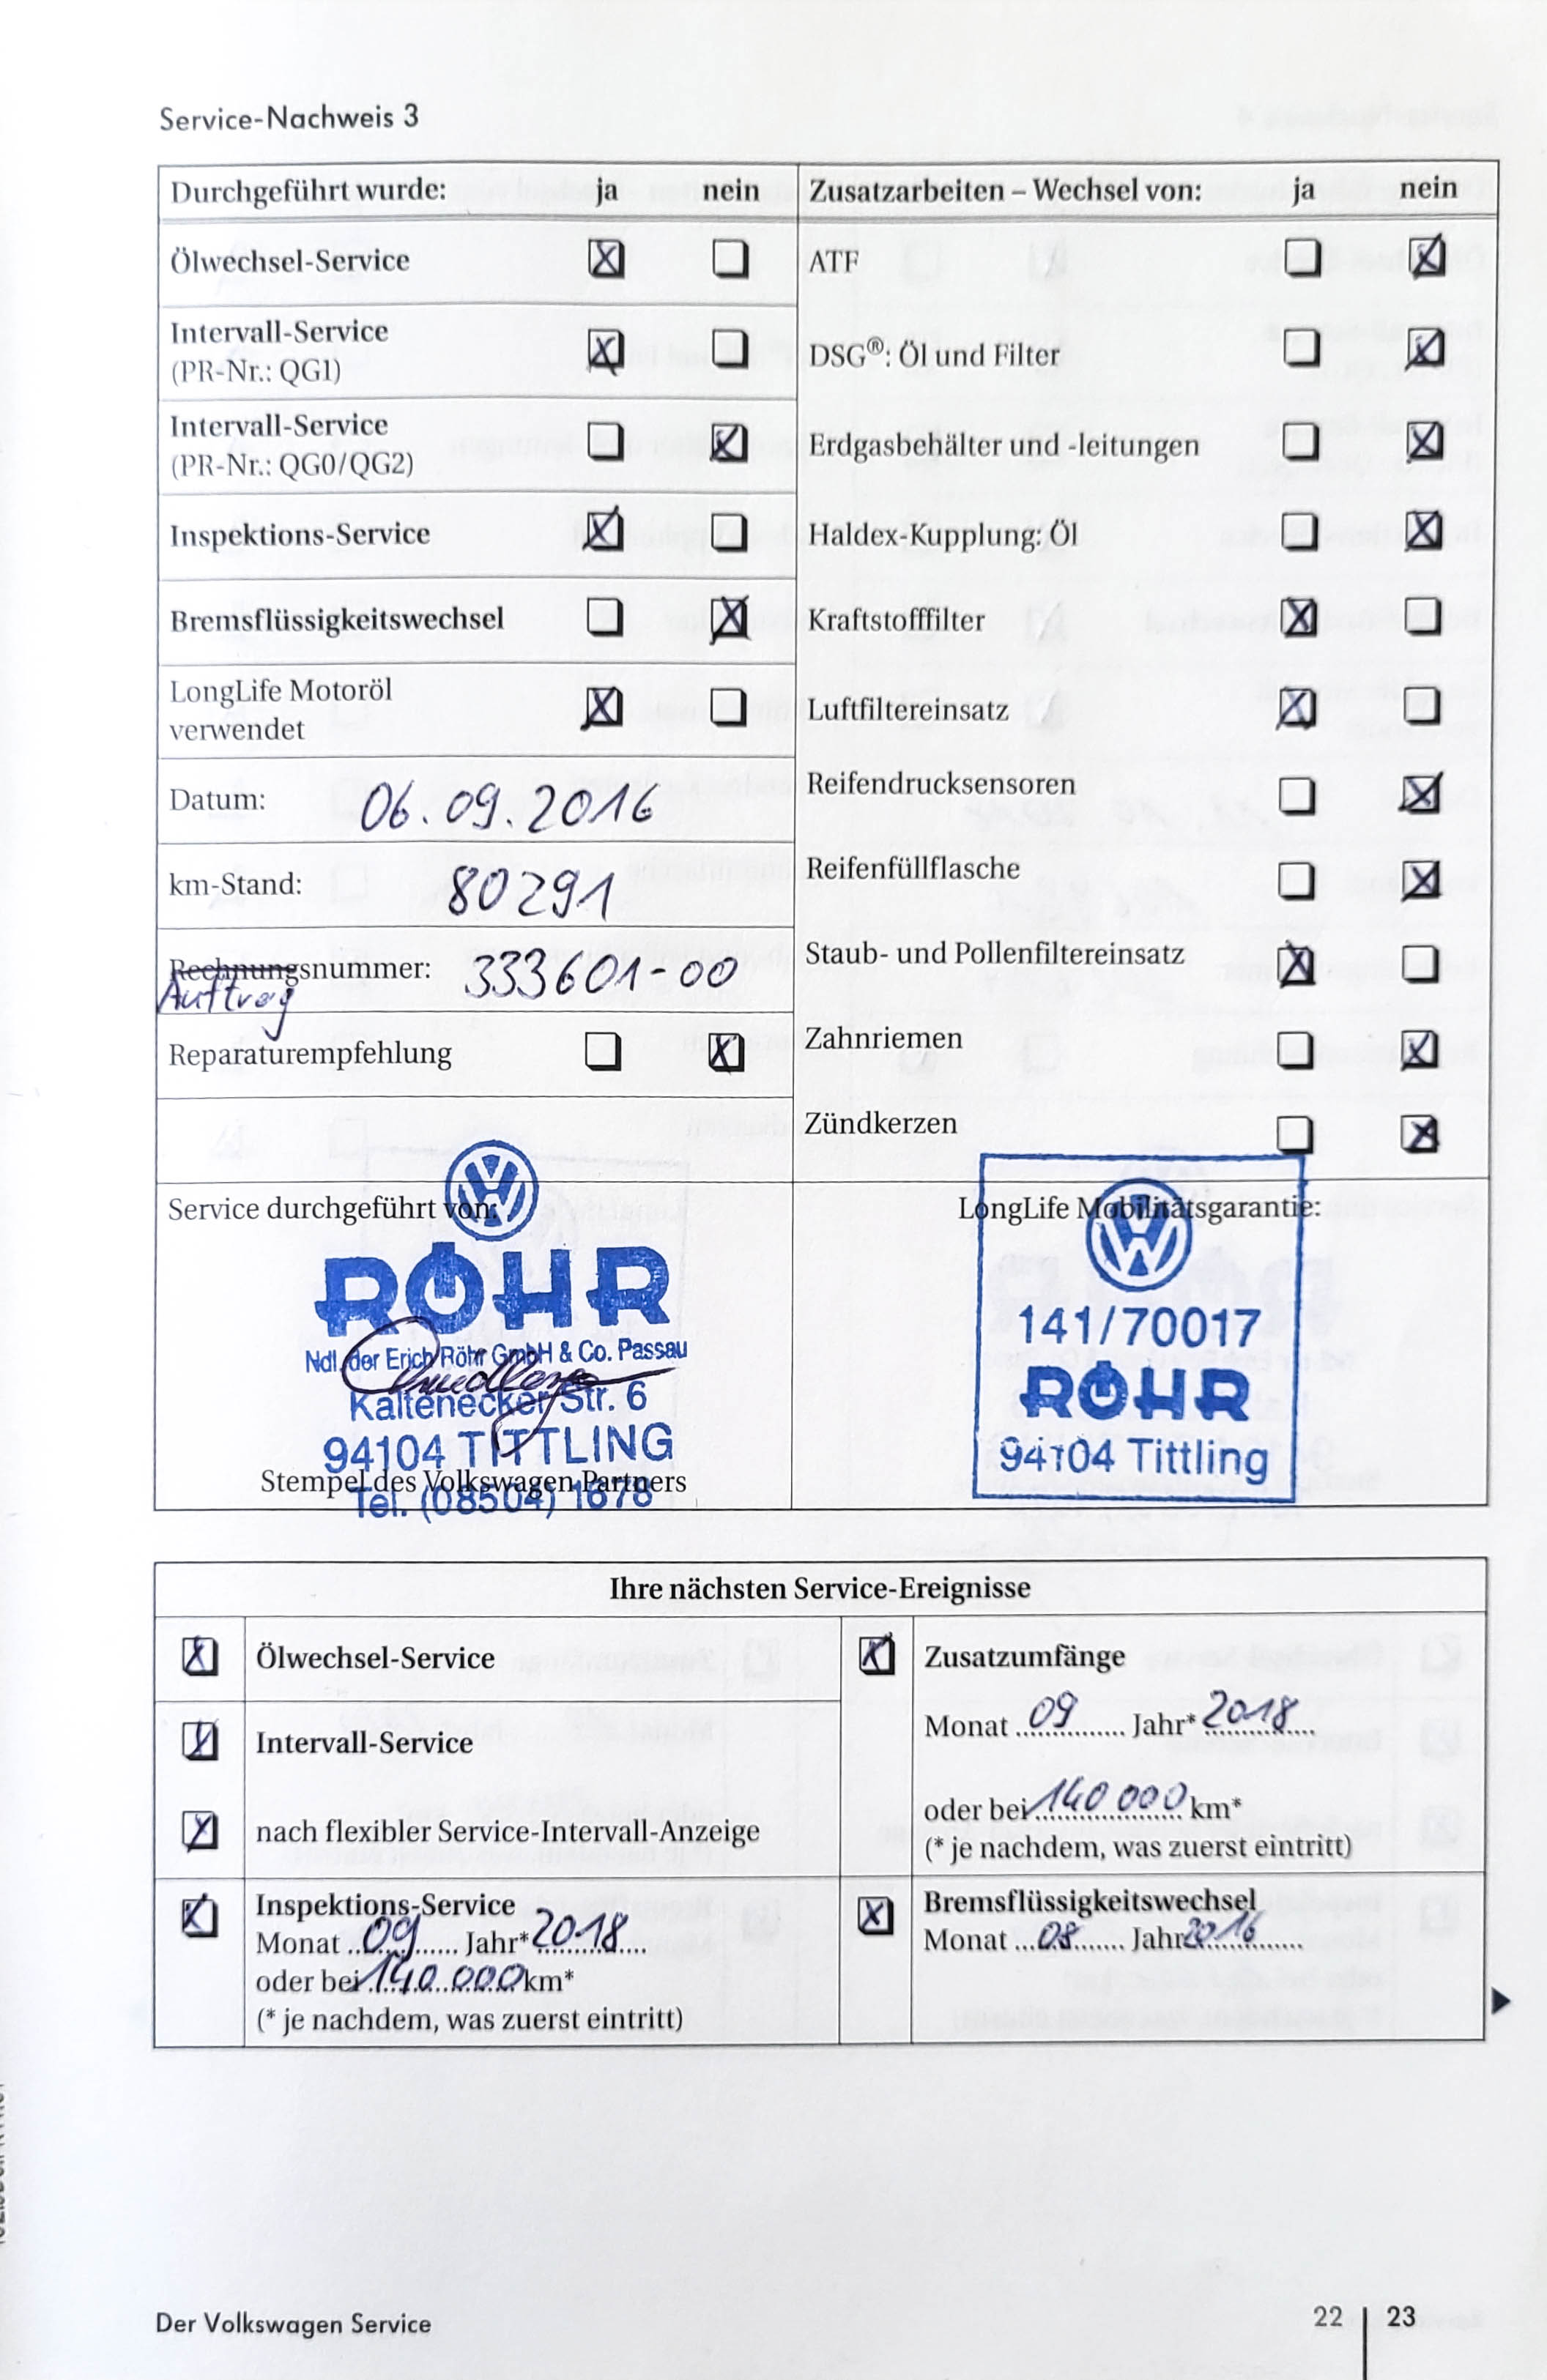 Service-Nachweis 3
Durchgeführt wurde: ja nein
Ölwechsel-Service
Intervall-Service
(PR-Nr.: QG1)
Intervall-Service
(PR-Nr.: QG0/QG2)
Inspektions-Service
Bremsflüssigkeitswechsel
LongLife Motoröl
verwendet
Datum: 06.09.2016
km-Stand: 80291
Rechnungsnummer: 333601-00
Auftrag
Reparaturempfehlung
Zusatzarbeiten – Wechsel von: ja nein
ATF
DSG®: Öl und Filter
Erdgasbehälter und -leitungen
Haldex-Kupplung: Öl
Kraftstofffilter
Luftfiltereinsatz
Reifendrucksensoren
Reifenfüllflasche
Staub- und Pollenfiltereinsatz
Zahnriemen
Zündkerzen
Service durchgeführt von:
RÖHR
Ndl. der Erich Röhr GmbH & Co. Passau
Kaltenecker Str. 6
94104 TITTLING
Stempel des Volkswagen Partners
Tel. (08504) 1678
LongLife Mobilitätsgarantie:
141/70017
RÖHR
94104 Tittling
Ihre nächsten Service-Ereignisse
Ölwechsel-Service
Intervall-Service
nach flexibler Service-Intervall-Anzeige
Inspektions-Service
Monat ..09...... Jahr* 2018
oder bei 140.000 km*
(* je nachdem, was zuerst eintritt)
Zusatzumfänge
Monat ..09...... Jahr* 2018
oder bei 140 000 km*
(* je nachdem, was zuerst eintritt)
Bremsflüssigkeitswechsel
Monat ...08...... Jahr 2016
Der Volkswagen Service
22 | 23